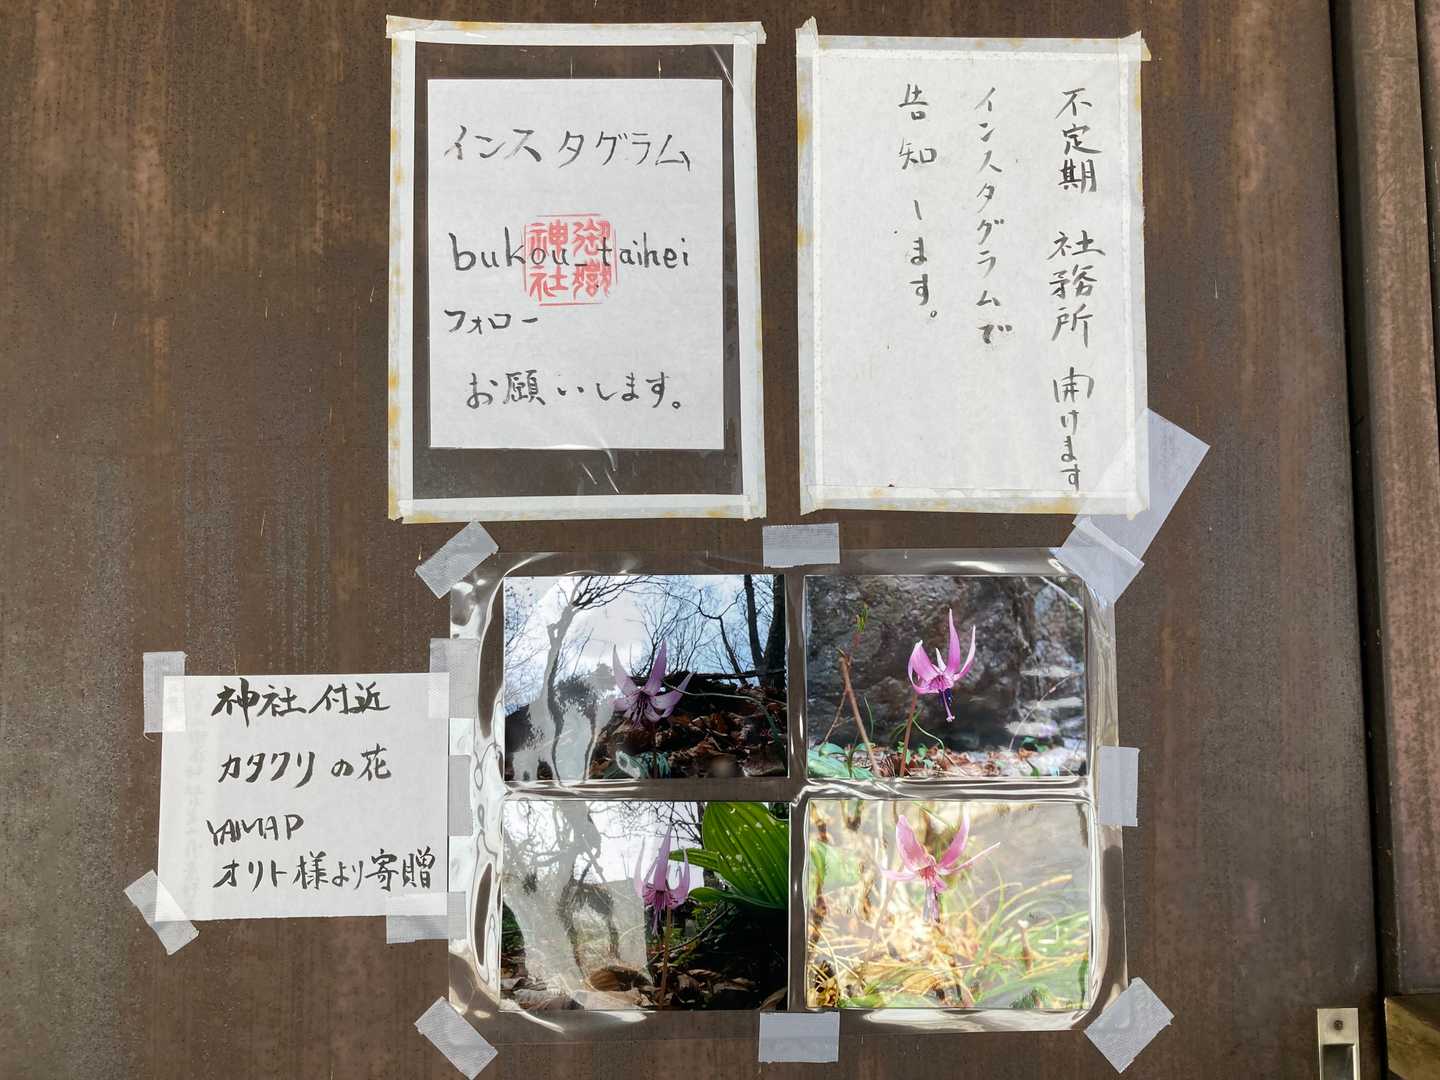 インスタグラム
bukou_taihei
フォロー
お願いします。
御嶽
神社
不定期 社務所 開けます
インスタグラムで
告知します。
神社付近
カタクリの花
YAMAP
オリト様より寄贈